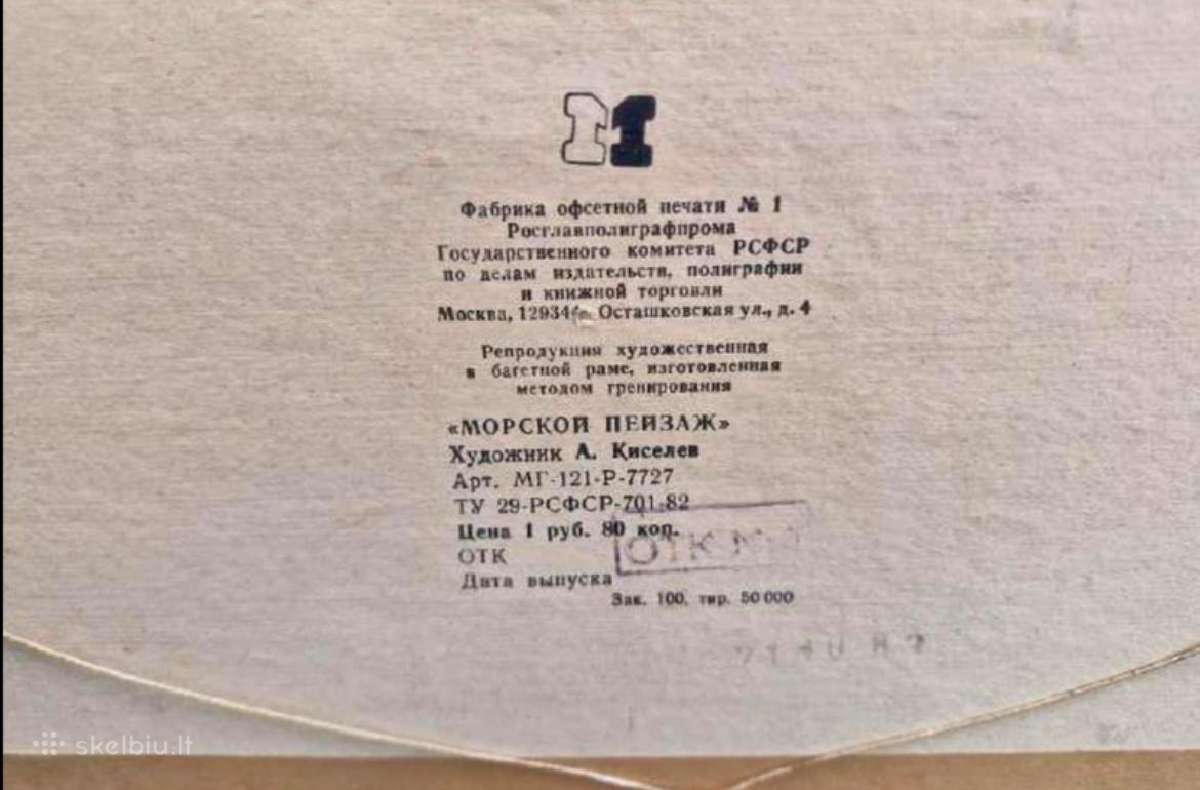 11
Фабрика офсетной печати № 1
Росглавполиграфпрома
Государственного комитета РСФСР
по делам издательств, полиграфии
и книжной торговли
Москва, Осташковская ул., д. 4
Репродукция художественная
в багетной раме, изготовленная
методом гренирования
«МОРСКОЙ ПЕЙЗАЖ»
Художник А. Киселев
Арт. МГ-121-Р-7727
ТУ 29-РСФСР-701-82
Цена 1 руб. 80 коп.
ОТК
ОТК №
Дата выпуска
Зак. 100, тир. 50 000
skelbiu.lt